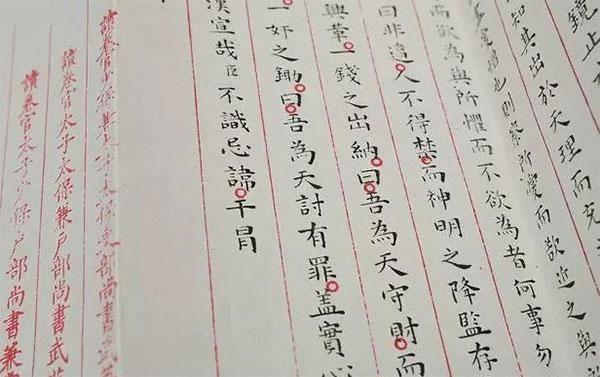 鏡止
知其出於天理而充
也則察所愛而欲近之與
而欲為與所懼而不欲為者何事勿
曰非遠人不得禁而神明之降監存
興革一錢之出納曰吾為天守財而
一奸之鋤曰吾為天討有罪蓋實心
漢宣哉臣不識忌諱干冒
讀卷官少保兼太子太保吏部尚書武英
讀卷官太子太保兼戶部尚書武英
讀卷官太子少保戶部尚書兼